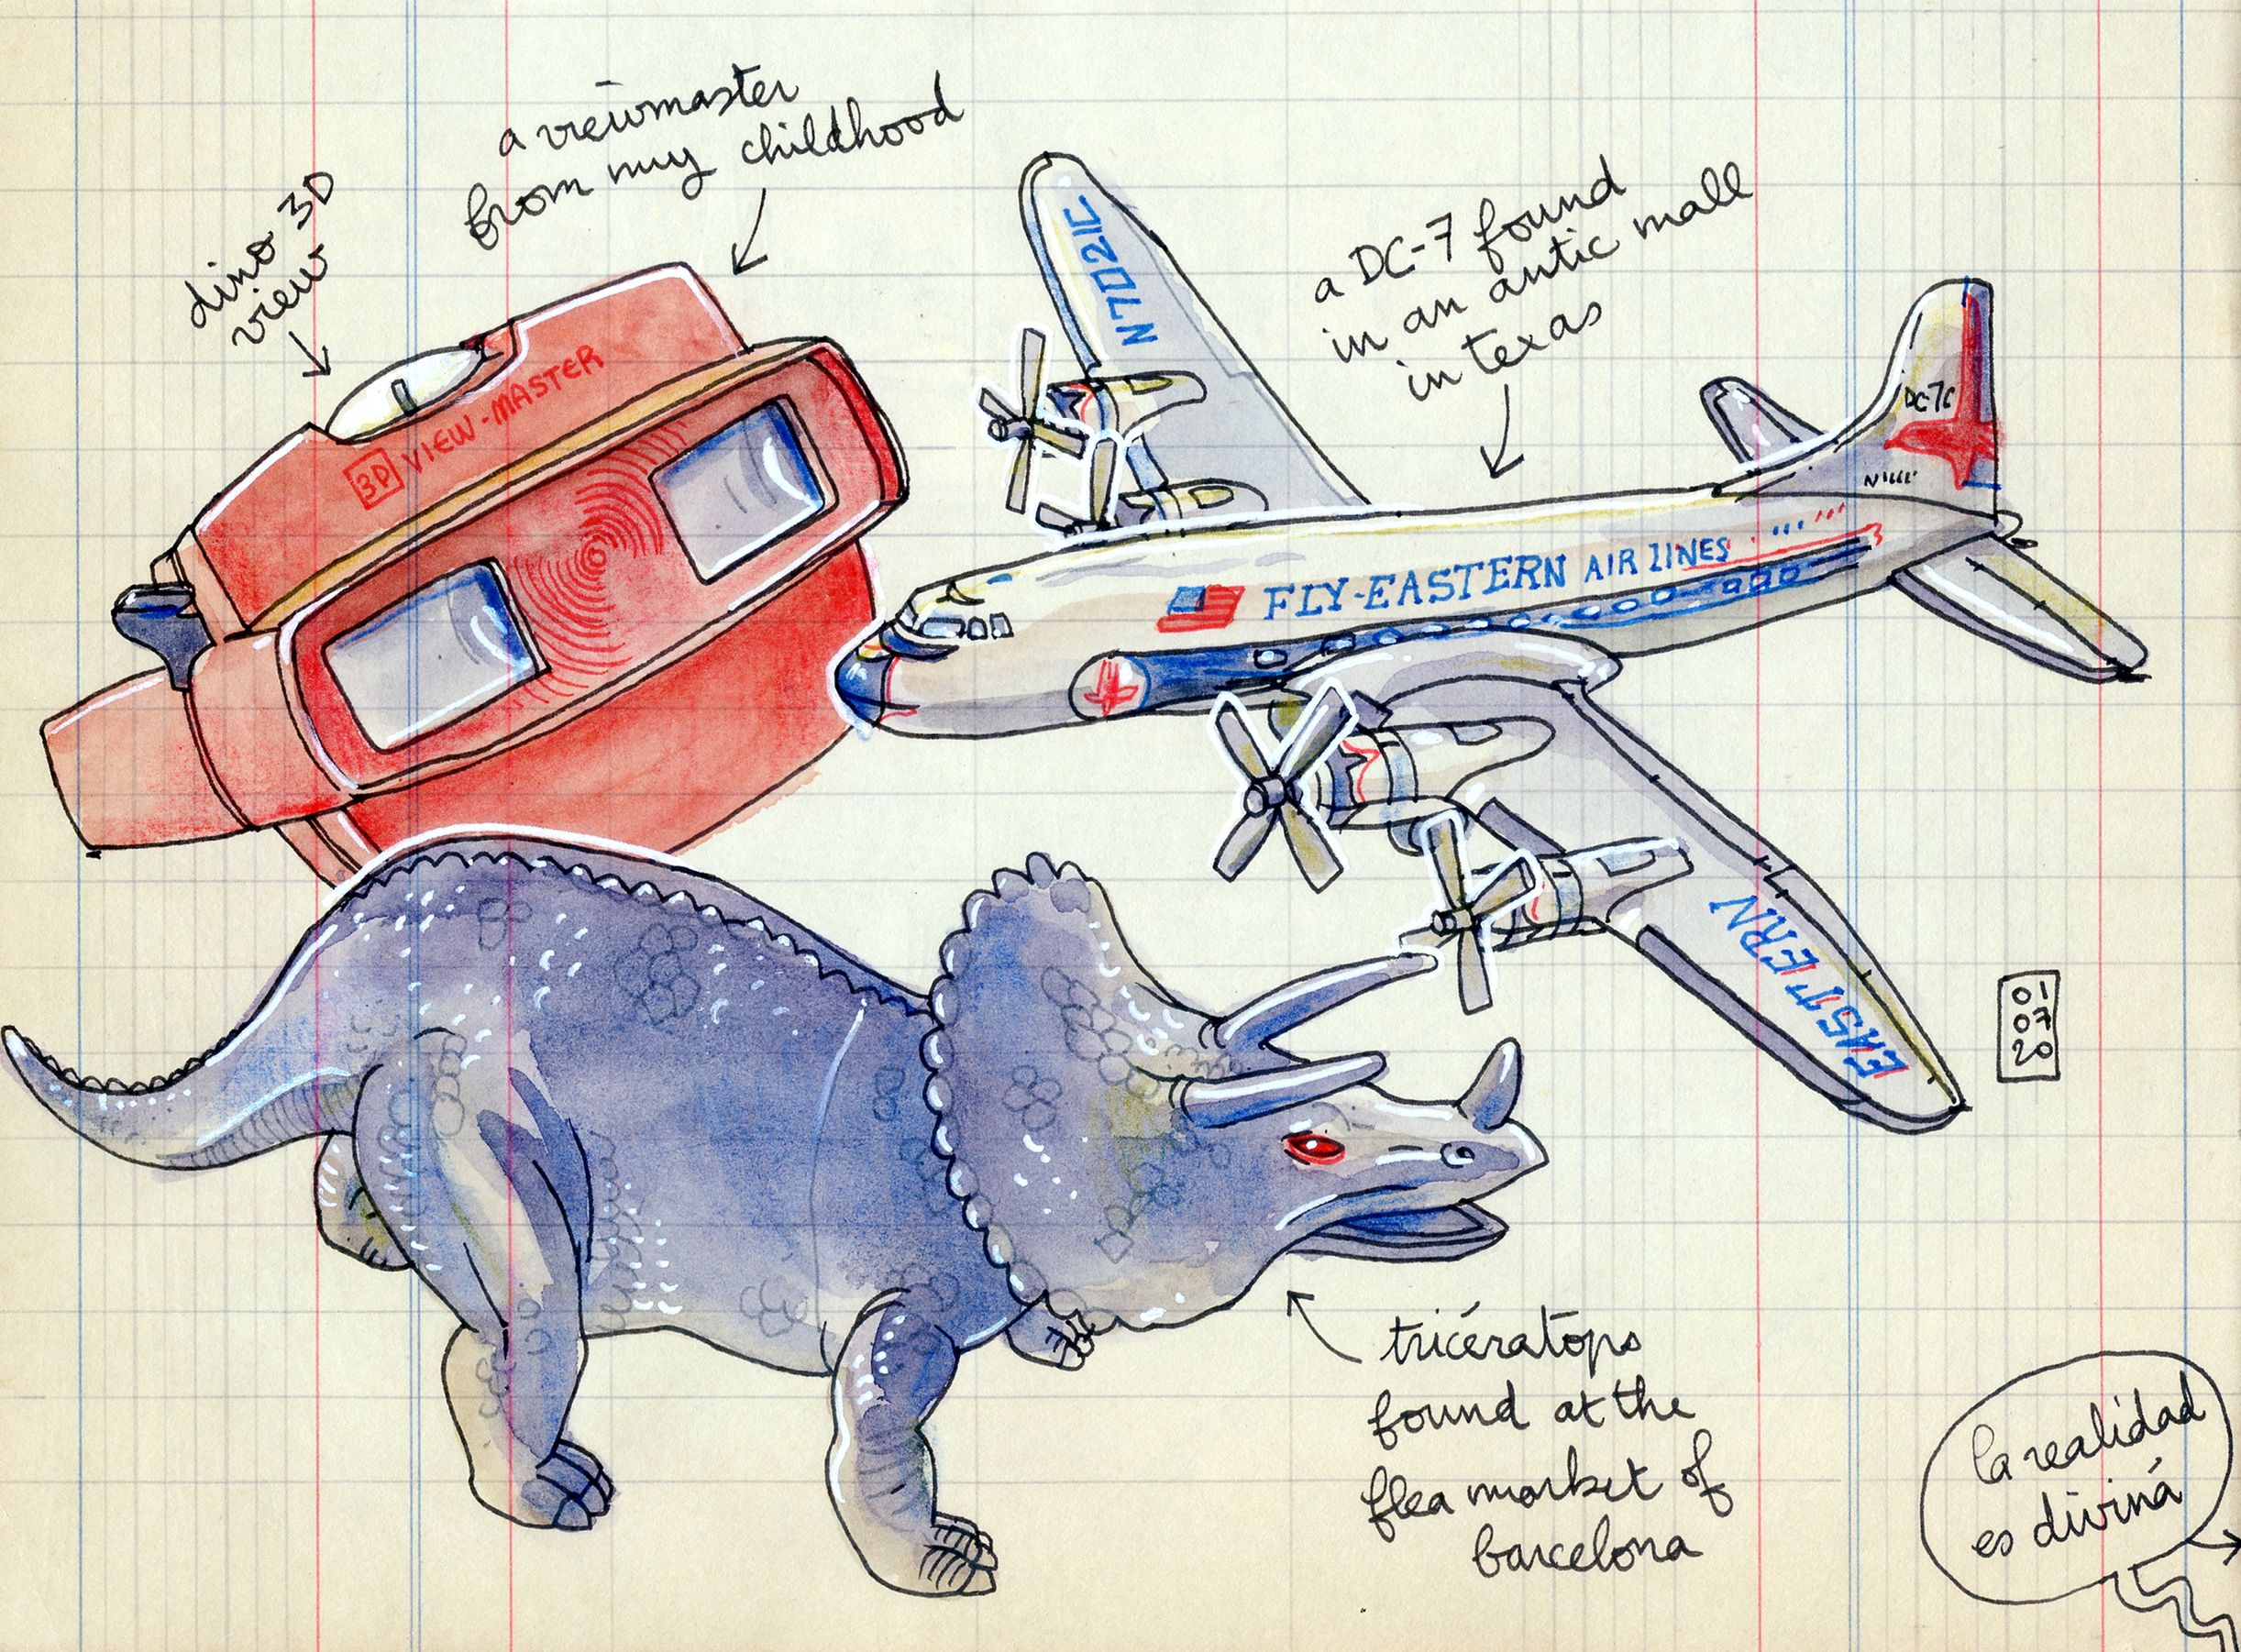 a viewmaster
from my childhood
dino 3D
view
3D VIEW-MASTER
a DC-7 found
in an antic mall
in texas
N7D21C
DC-7C
FLY-EASTERN AIR LINES
EASTERN
01
07
20
tricératops
found at the
flea market of
barcelona
la realidad
es diviná